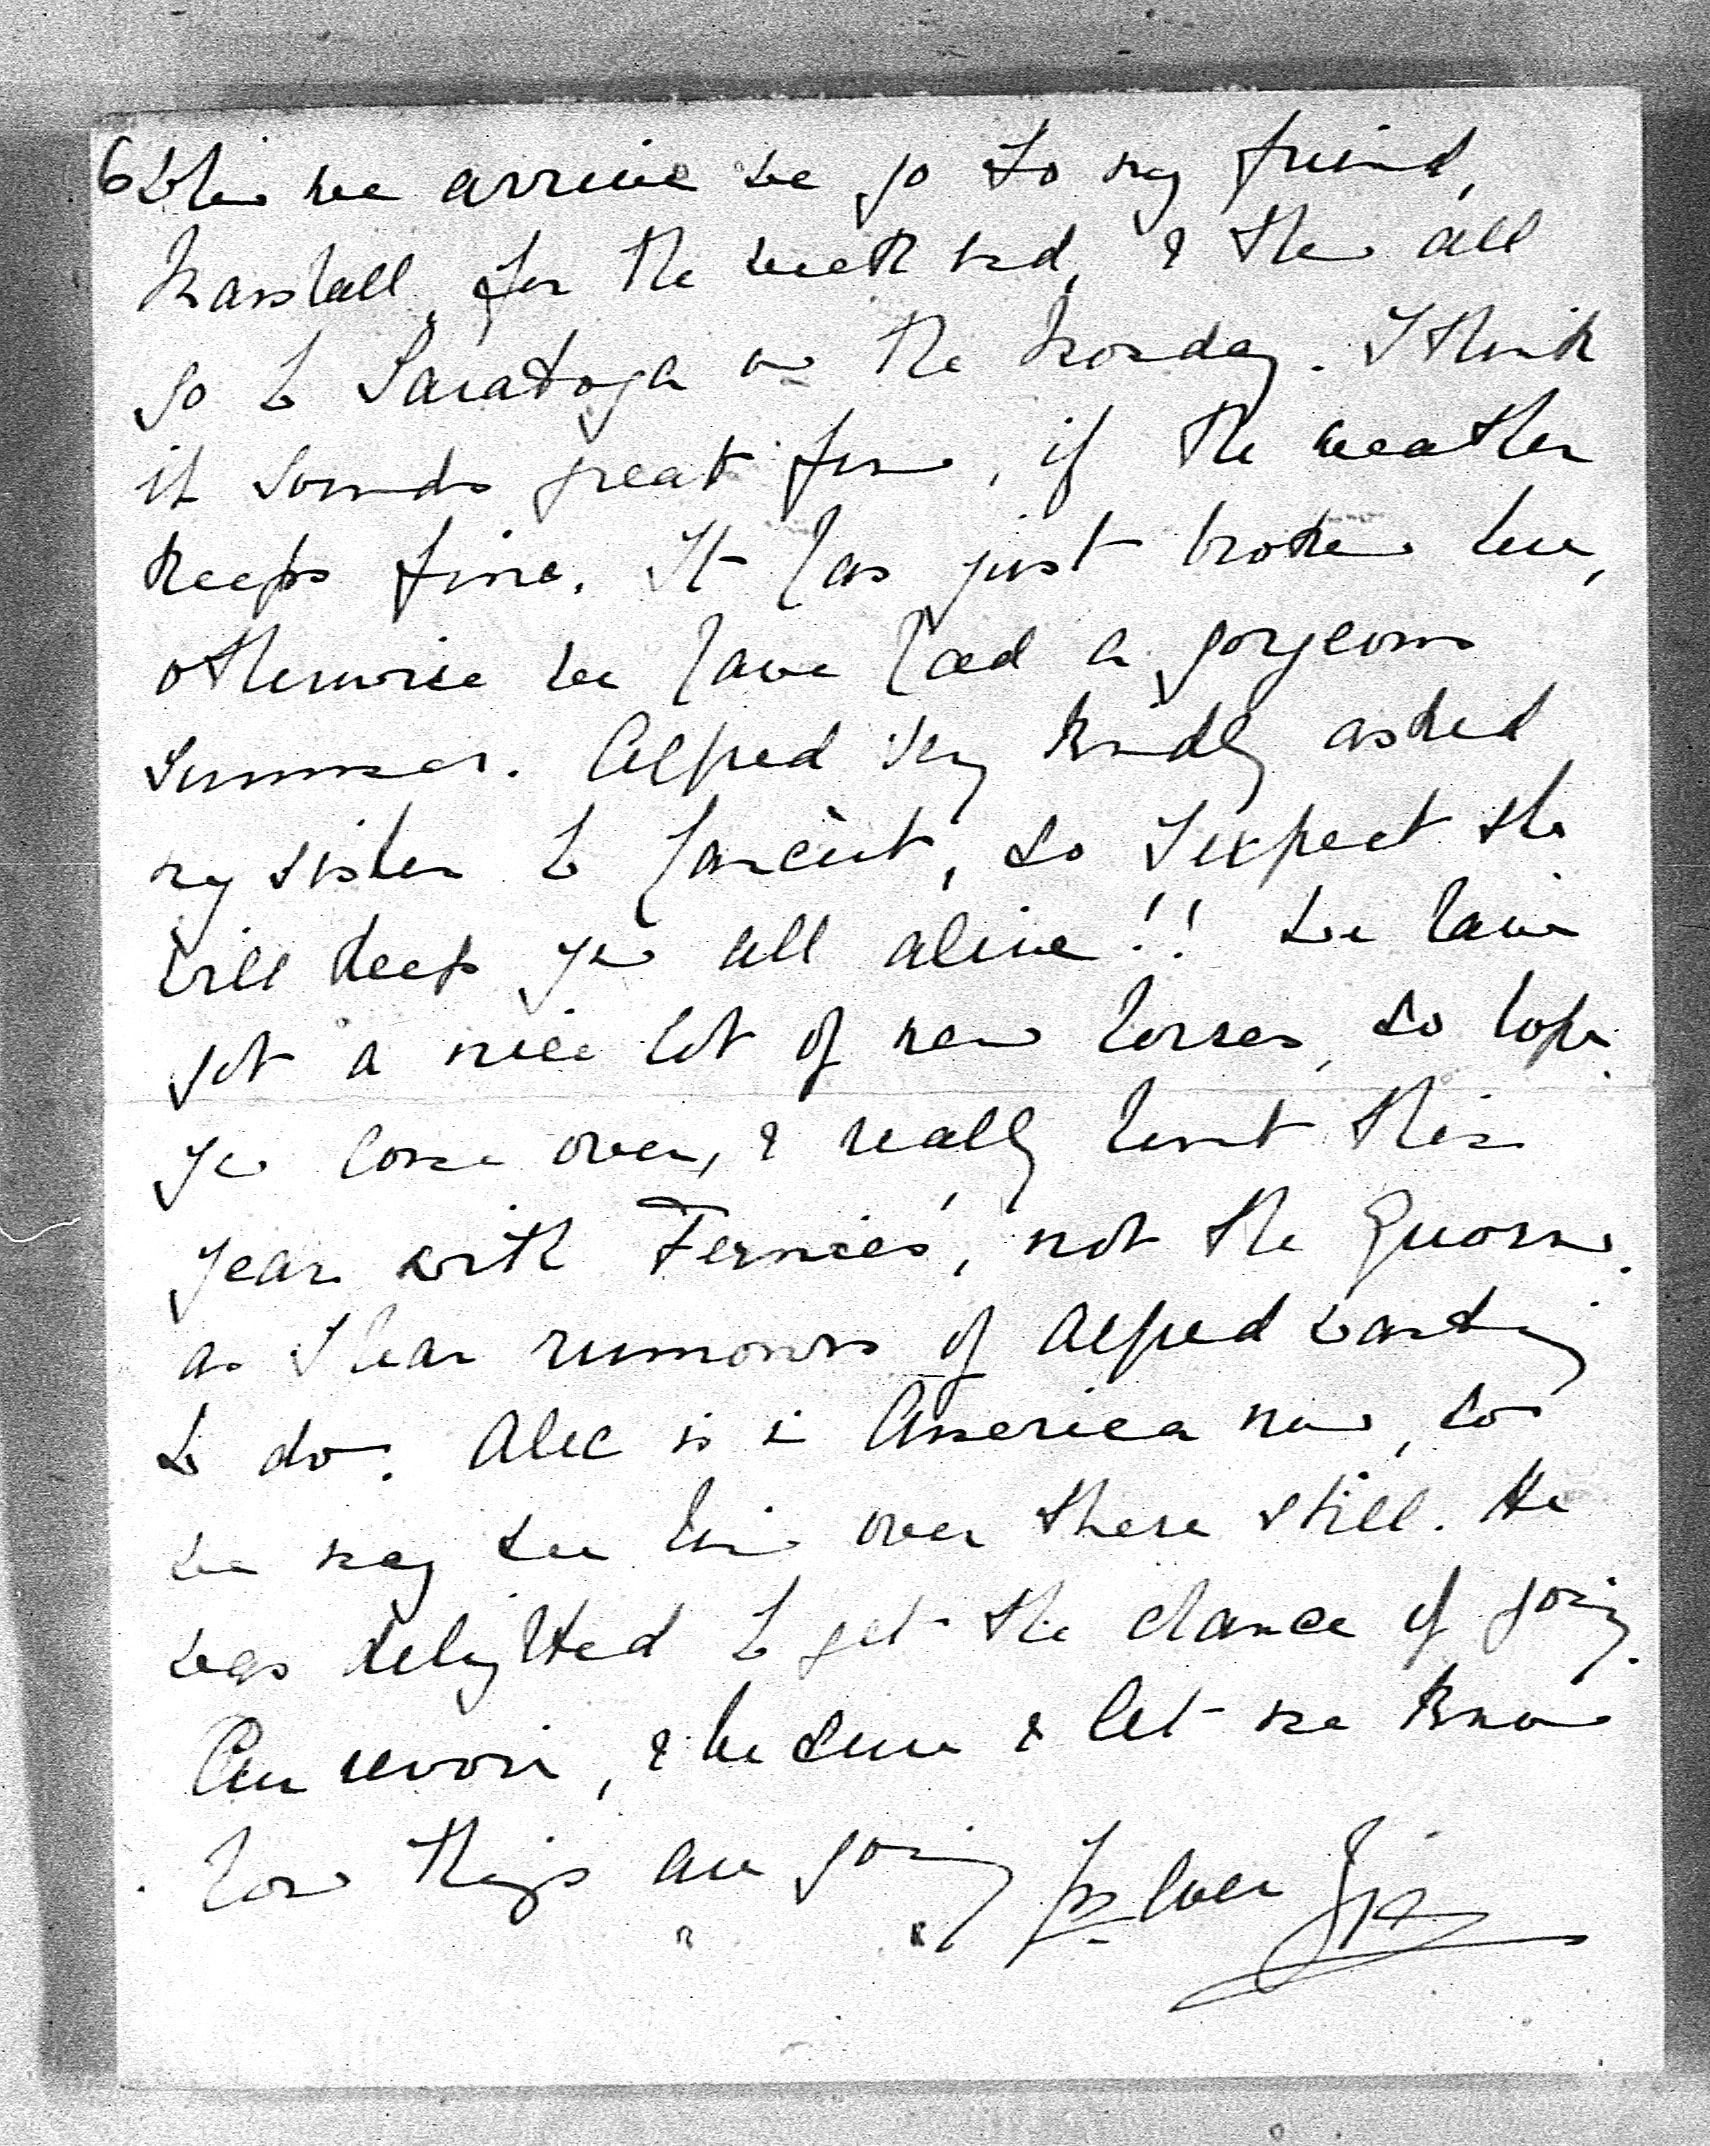 6 When we arrive we go to my friend,
Marshall, for the week end, & then all
go to Saratoga on the Monday. I think
it sounds great fun, if the weather
keeps fine. It has just broken here,
otherwise we have had a gorgeous
summer. Alfred very kindly asked
my sister to, so I expect she
will keep you all alive!! We have
got a nice lot of new horses, so hope
you come over, & really hunt this
year with Fernies', not the Quorn.
as I hear rumours of Alfred wanting
to do. Alec is in America now, so
we may see him over there still. He
was delighted to get the chance of going.
Au revoir, & be sure & let me know
how things are going Yrs Ever